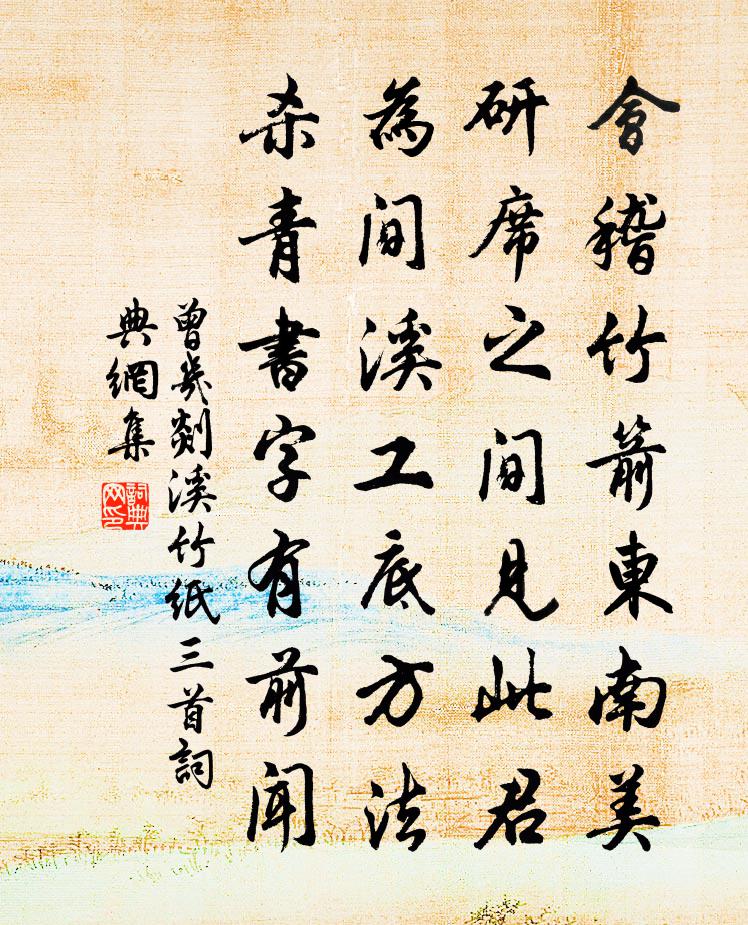 會稽竹箭東南美
研席之間見此君
為間溪工底方法
殺青書字有前聞
曾幾剡溪竹紙三首詞
典網集
詞典
网印